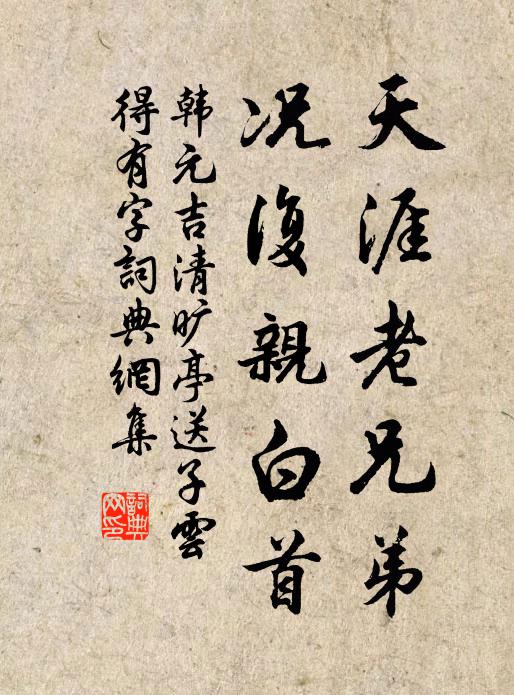 天涯老兄弟
况復親白首
韩元吉清旷亭送子雲
得有字詞典網集
詞典网印